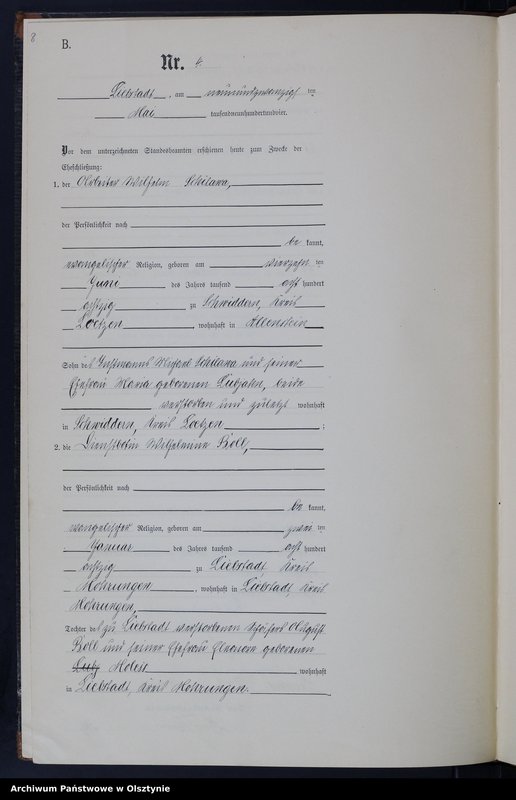 8
B.
Nr. 4
Liebstadt, am neunundzwanzigsten
Mai tausendneunhundertundvier.
Vor dem unterzeichneten Standesbeamten erschienen heute zum Zwecke der
Eheschließung:
1. der Arbeiter Wilhelm
der Persönlichkeit nach
be kannt,
evangelischer Religion, geboren am vierzehn ten
Juni des Jahres tausend acht hundert
achtzig zu Schwiddern, Kreis
Loetzen, wohnhaft in Allenstein
Sohn des Instmanns Michael und seiner
Ehefrau Maria geborenen beide
verstorben und zuletzt wohnhaft
in Schwiddern, Kreis Loetzen ;
2. die Dienstbotin Wilhelmine Roll,
der Persönlichkeit nach
be kannt,
evangelischer Religion, geboren am zwei ten
Januar des Jahres tausend acht hundert
achtzig zu Liebstadt Kreis
Mohrungen, wohnhaft in Liebstadt, Kreis
Mohrungen,
Tochter des zu Liebstadt verstorbenen August
Roll und seiner Ehefrau Eleonore geborenen
wohnhaft
in Liebstadt, Kreis Mohrungen.
Archiwum Państwowe w Olsztynie